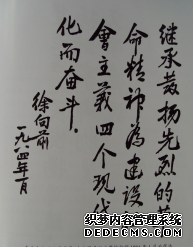 继承发扬先烈的
命精神為建设
會主義四个现代
化而奋斗。
徐向前
一九八四年一月
织梦内容管理系统
DEDECMS.COM